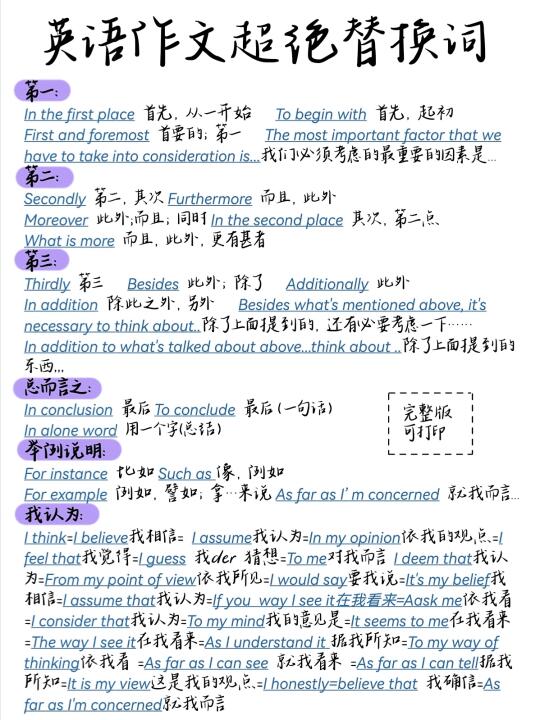 英语作文超绝替换词
第一:
In the first place 首先, 从一开始 To begin with 首先, 起初
First and foremost 首要的; 第一 The most important factor that we
have to take into consideration is...我们必须考虑的最重要的因素是...
第二:
Secondly 第二, 其次 Furthermore 而且, 此外
Moreover 此外;而且; 同时 In the second place 其次, 第二点
What is more 而且, 此外, 更有甚者
第三:
Thirdly 第三 Besides 此外; 除了 Additionally 此外
In addition 除此之外, 另外 Besides what's mentioned above, it's
necessary to think about..除了上面提到的, 还有必要考虑一下……
In addition to what's talked about above...think about ..除了上面提到的
东西...
总而言之:
In conclusion 最后 To conclude 最后 (一句话)
In alone word 用一个字(总结)
完整版
可打印
举例说明:
For instance 比如 Such as 像, 例如
For example 例如, 譬如; 拿…来说 As far as I’m concerned 就我而言...
我认为:
I think=I believe我相信= I assume我认为=In my opinion依我的观点=I
feel that我觉得=I guess 我der 猜想=To me对我而言 I deem that我认
为=From my point of view依我所见=I would say要我说=It's my belief我
相信=I assume that我认为=If you way I see it在我看来=Aask me依我看
=I consider that我认为=To my mind我的意见是=It seems to me在我看来
=The way I see it在我看来=As I understand it 据我所知=To my way of
thinking依我看 =As far as I can see 就我看来 =As far as I can tell据我
所知=It is my view这是我的观点=I honestly=believe that 我确信=As
far as I'm concerned就我而言